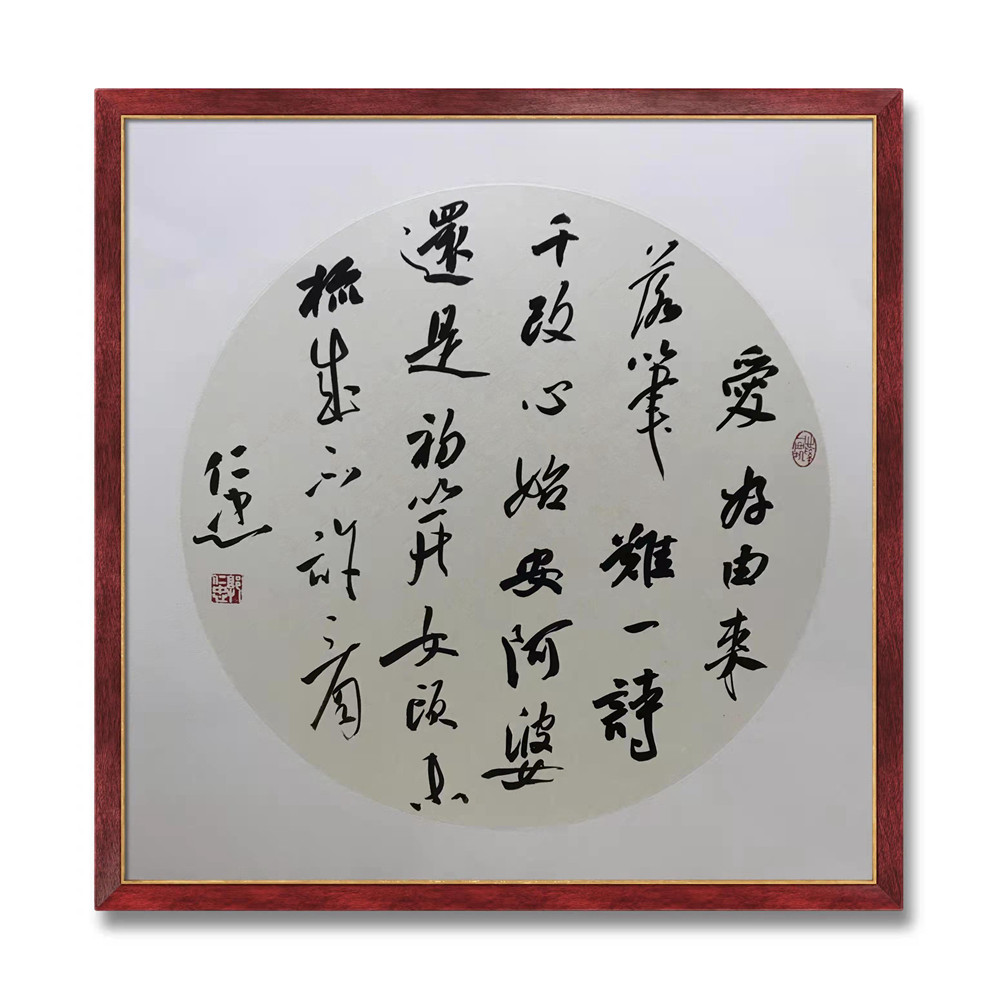 愛好由来
落筆難一詩
千改心始安阿婆
還是初笄女頭未
梳成不許看
仁忠
郭仁忠